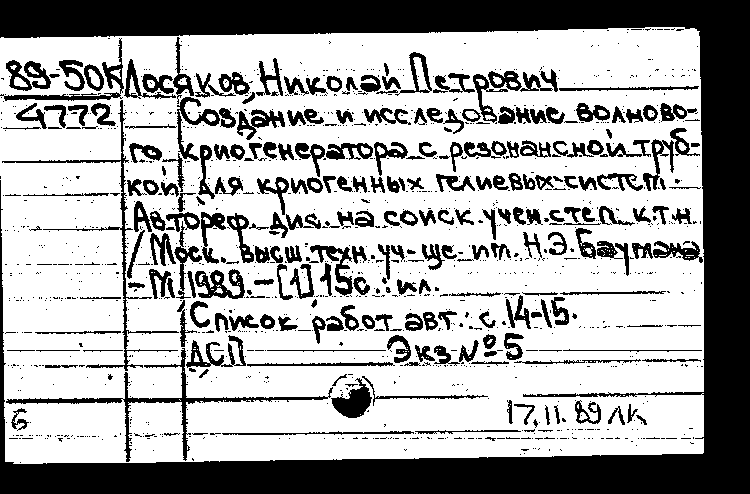 89-50К Лосяков, Николай Петрович
4772 Создание и исследование волново-
го криогенератора с резонансной труб-
кой для криогенных гелиевых систем.
Автореф. дис. на соиск. учен. степ. к.т.н.
/Моск. высш. техн. уч-ще. им. Н.Э. Баумана.
- М. 1989. - [1] 15с.: ил.
Список работ авт.: с. 14-15.
ДСП Экз № 5
6 17.11.89 ЛК